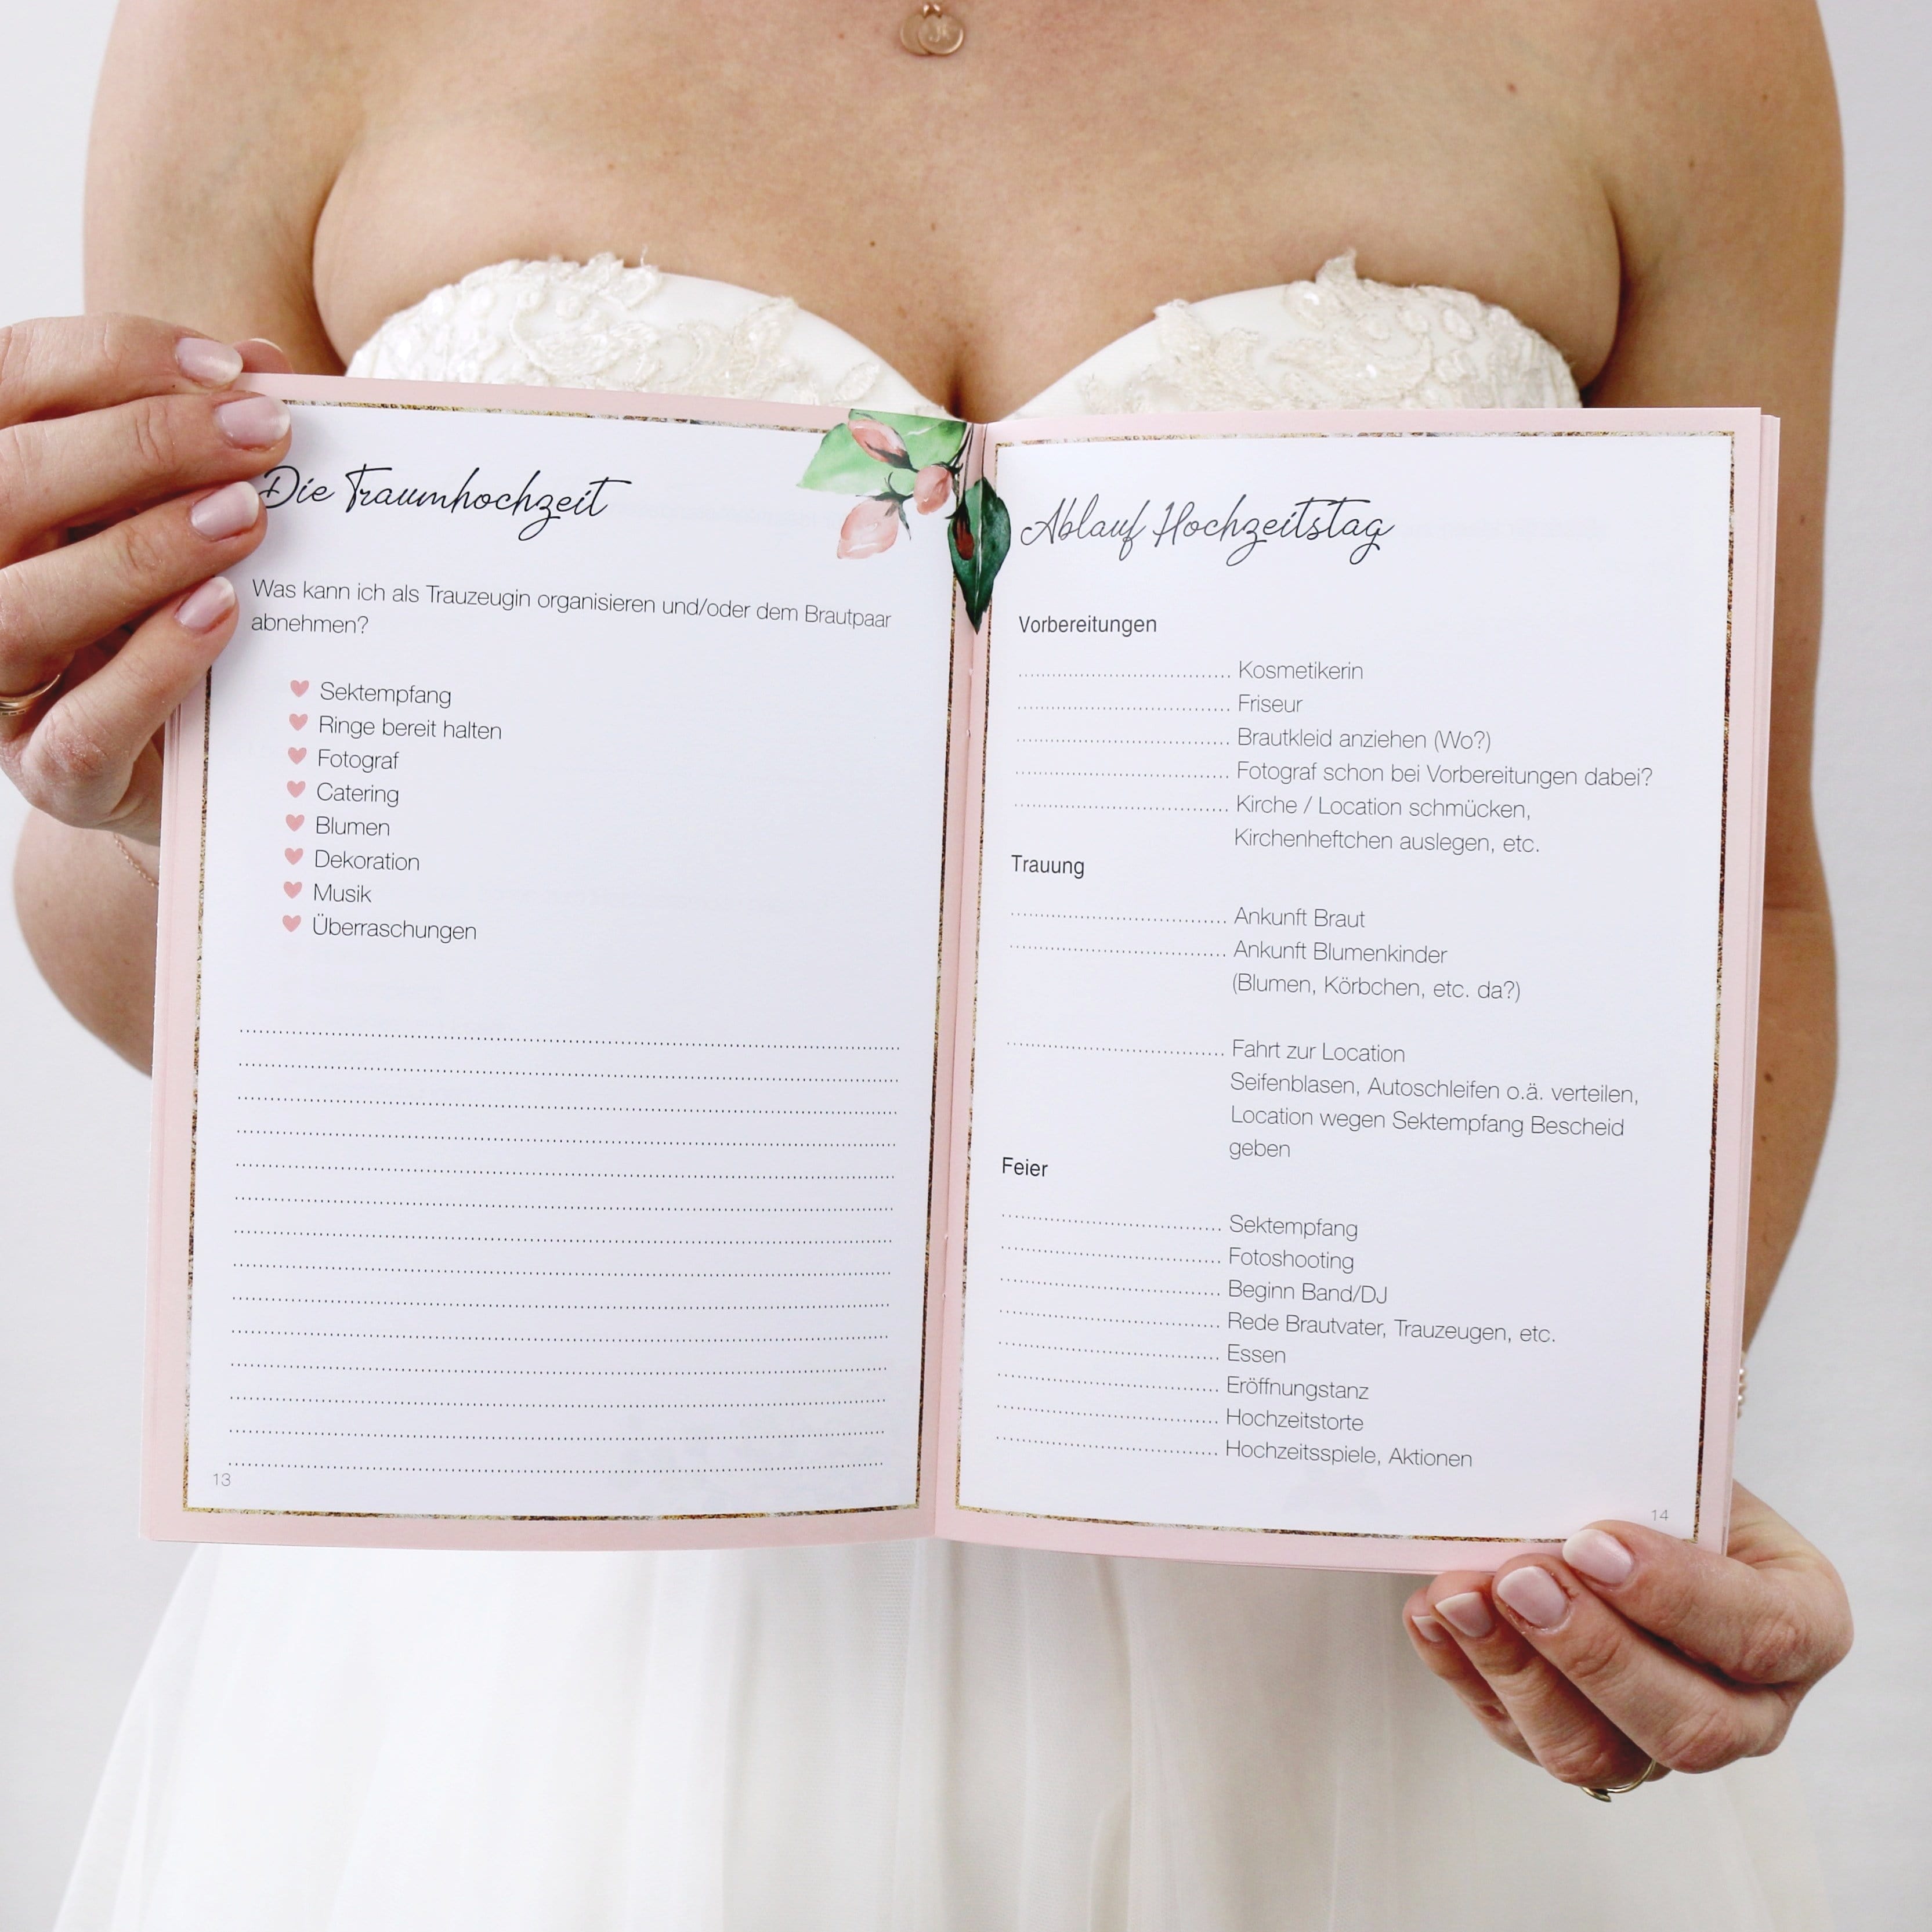 Die Traumhochzeit
Was kann ich als Trauzeugin organisieren und/oder dem Brautpaar
abnehmen?
Sektempfang
Ringe bereit halten
Fotograf
Catering
Blumen
Dekoration
Musik
Überraschungen
13
Ablauf Hochzeitstag
Vorbereitungen
Kosmetikerin
Friseur
Brautkleid anziehen (Wo?)
Fotograf schon bei Vorbereitungen dabei?
Kirche / Location schmücken,
Kirchenheftchen auslegen, etc.
Trauung
Ankunft Braut
Ankunft Blumenkinder
(Blumen, Körbchen, etc. da?)
Fahrt zur Location
Seifenblasen, Autoschleifen o.ä. verteilen,
Location wegen Sektempfang Bescheid
geben
Feier
Sektempfang
Fotoshooting
Beginn Band/DJ
Rede Brautvater, Trauzeugen, etc.
Essen
Eröffnungstanz
Hochzeitstorte
Hochzeitsspiele, Aktionen
14